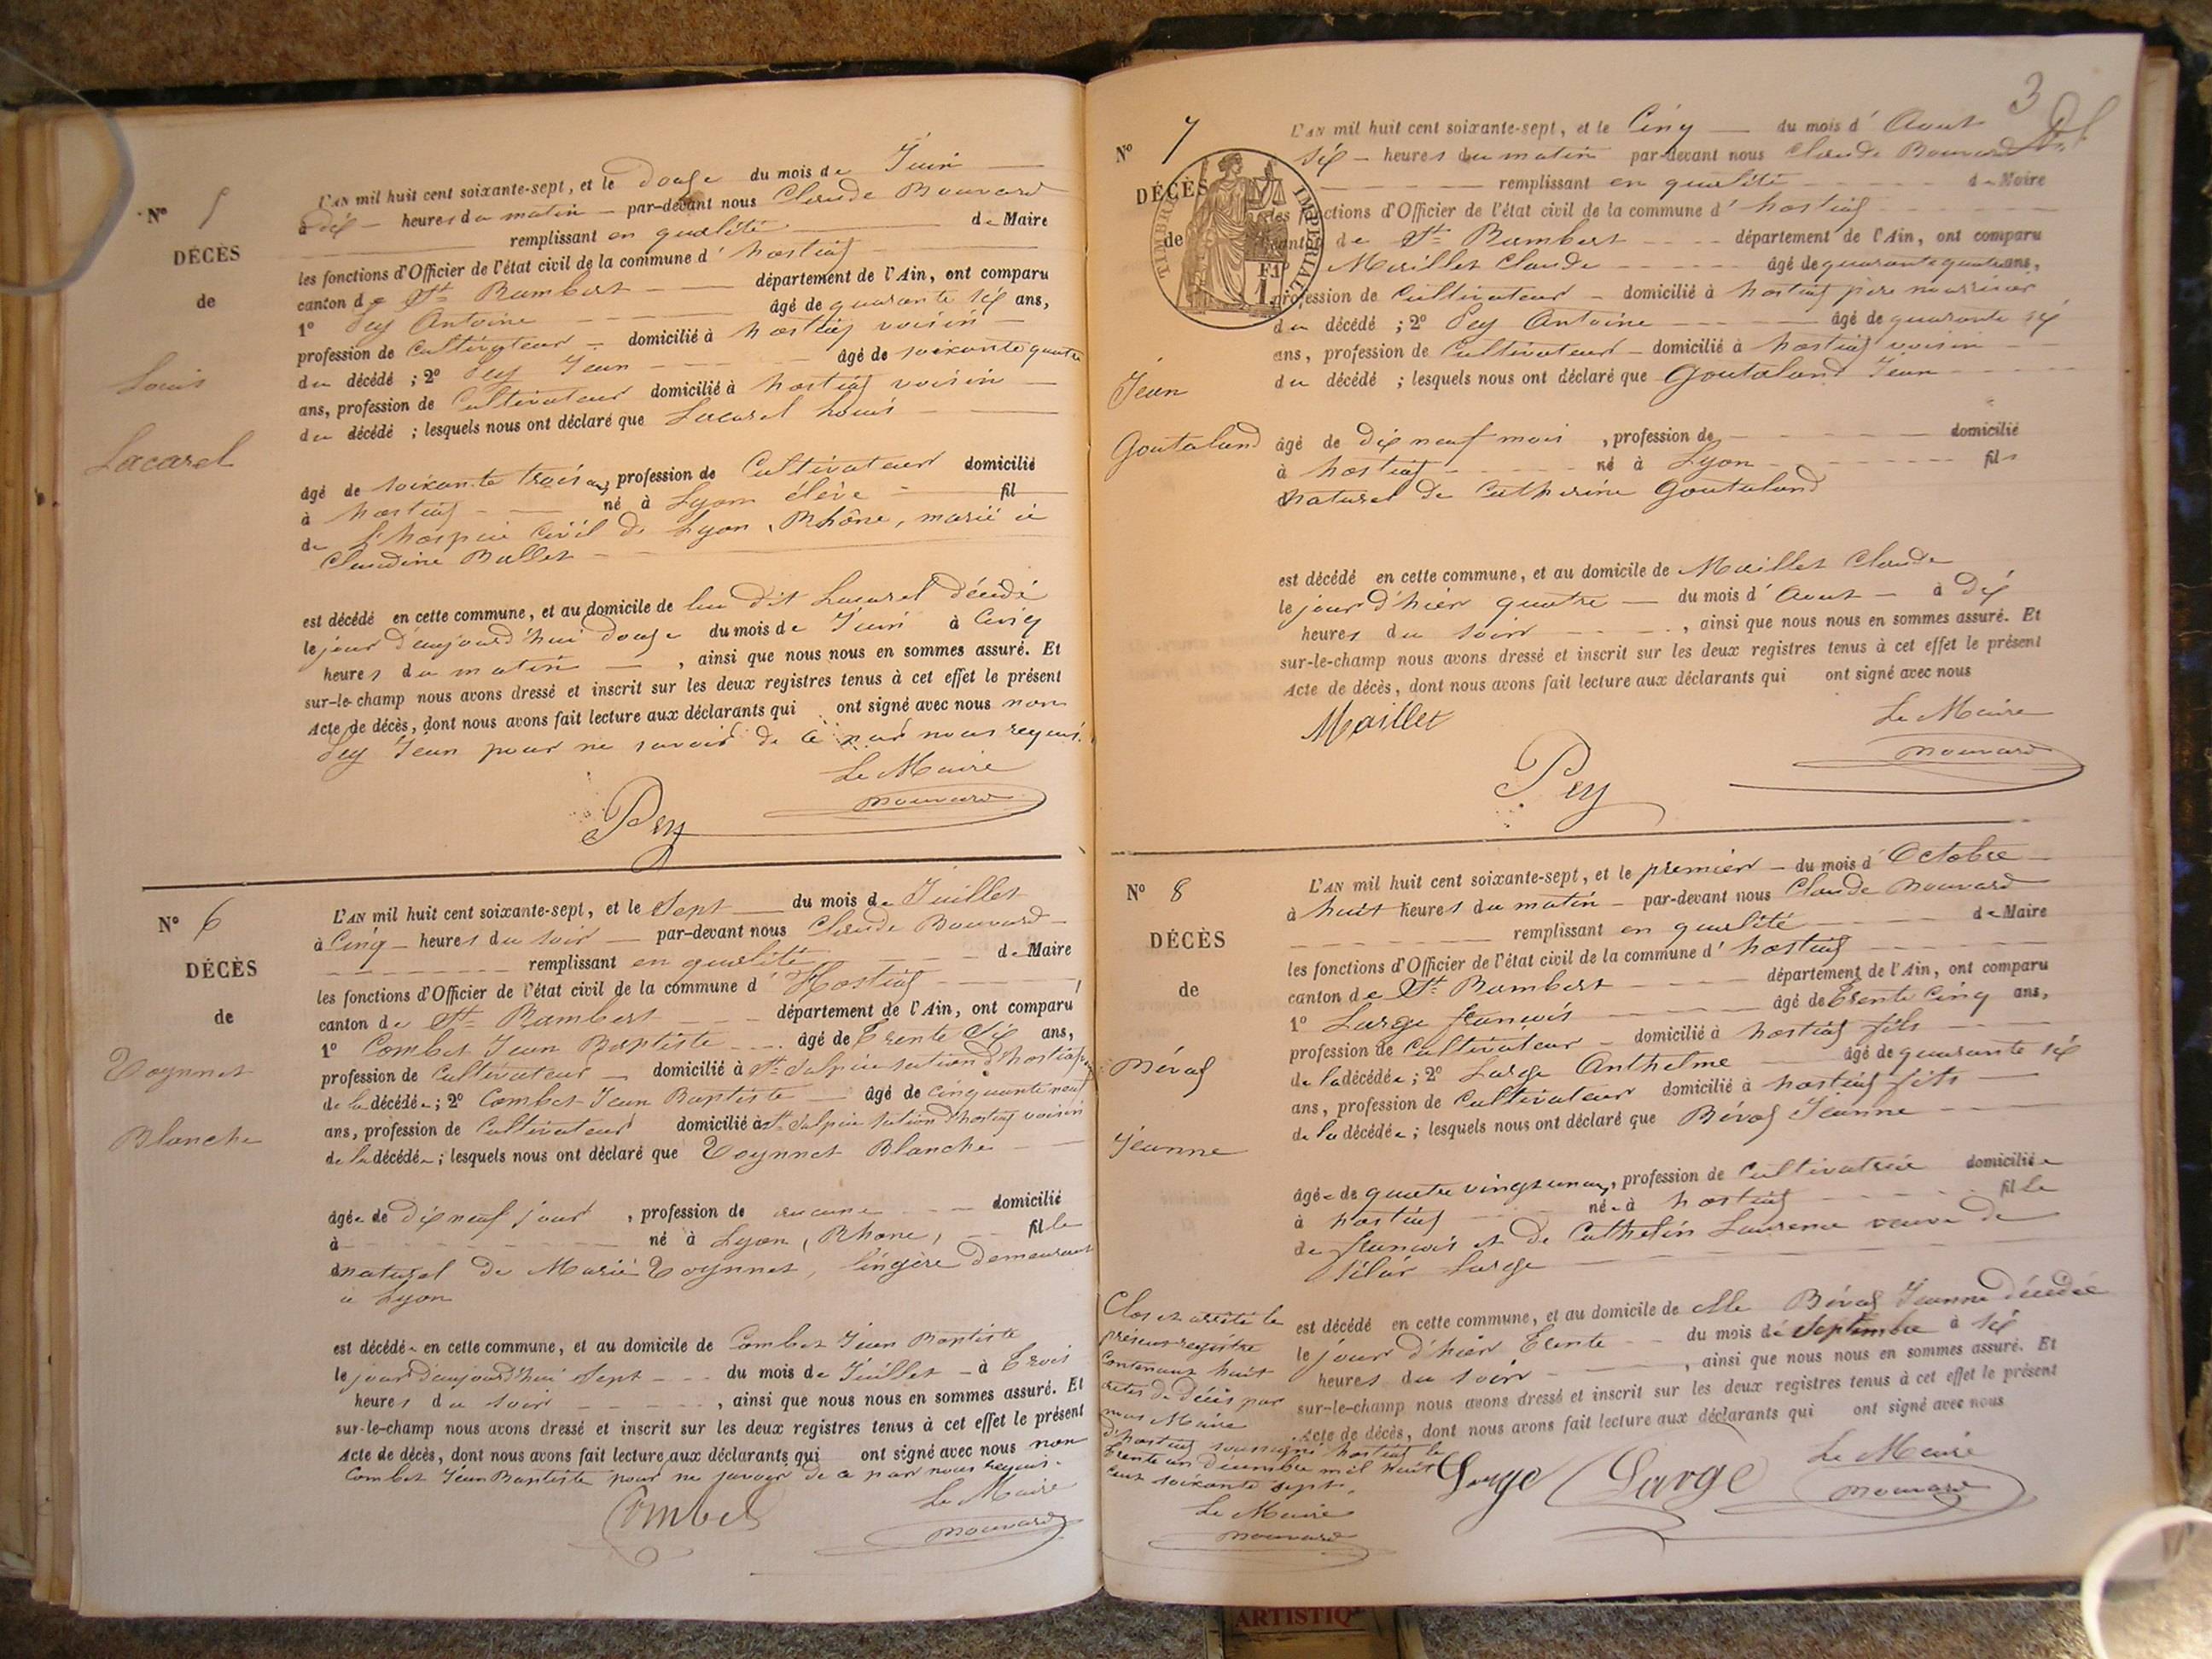 N° 5
DÉCÈS
de
Louis
Lacarel
L'AN mil huit cent soixante-sept, et le douze du mois de Juin
à dix heures du matin par-devant nous Claude Bouvard
remplissant en qualité de Maire
les fonctions d'Officier de l'état civil de la commune d' hostiaz
canton de St Rambert département de l'Ain, ont comparu
1° Pey Antoine âgé de quarante six ans,
profession de Cultivateur domicilié à hostiaz voisin
du décédé ; 2° Pey Jean âgé de soixante quatre
ans, profession de Cultivateur domicilié à hostiaz voisin
du décédé ; lesquels nous ont déclaré que Lacarel Louis
âgé de soixante trois ans, profession de Cultivateur domicilié
à hostiaz né à Lyon élève fil
de l'hospice Civil de Lyon, Rhône, marié à
Claudine Ballet
est décédé en cette commune, et au domicile de lui dit Lacarel décédé
le jour d'aujourd'hui douze du mois de Juin à Cinq
heures du matin , ainsi que nous nous en sommes assuré. Et
sur-le-champ nous avons dressé et inscrit sur les deux registres tenus à cet effet le présent
Acte de décès, dont nous avons fait lecture aux déclarants qui ont signé avec nous non
Pey Jean pour ne savoir de ce par nous requis.
Le Maire
Pey Bouvard
N° 6
DÉCÈS
de
Toynnet
Blanche
L'AN mil huit cent soixante-sept, et le Sept du mois de Juillet
à Cinq heures du soir par-devant nous Claude Bouvard
remplissant en qualité de Maire
les fonctions d'Officier de l'état civil de la commune d' Hostiaz
canton de St Rambert département de l'Ain, ont comparu
1° Combet Jean Baptiste âgé de Trente Six ans,
profession de Cultivateur domicilié à St Sulpice section d'hostiaz
de la décédée ; 2° Combet Jean Baptiste âgé de cinquante neuf
ans, profession de Cultivateur domicilié à St Sulpice section d'hostiaz voisin
de la décédée ; lesquels nous ont déclaré que Toynnet Blanche
âgée de dix neuf jour , profession de aucune domicilié
à né à Lyon, Rhone, fille
naturel de Marie Toynnet, lingère demeurant
à Lyon
est décédée en cette commune, et au domicile de Combet Jean Baptiste
le jour d'aujourd'hui Sept du mois de Juillet à Trois
heures du soir , ainsi que nous nous en sommes assuré. Et
sur-le-champ nous avons dressé et inscrit sur les deux registres tenus à cet effet le présent
Acte de décès, dont nous avons fait lecture aux déclarants qui ont signé avec nous non
Combet Jean Baptiste pour ne savoir de ce par nous requis.
Le Maire
Combet Bouvard
3
N° 7
DÉCÈS
de
TIMBRE IMPÉRIAL
1 Fr
Jean
Goutaland
L'AN mil huit cent soixante-sept, et le Cinq du mois d' Aout
six heures du matin par-devant nous Claude Bouvard
remplissant en qualité de Maire
les fonctions d'Officier de l'état civil de la commune d' hostiaz
canton de St Rambert département de l'Ain, ont comparu
Maillet Claude âgé de quarante quatre ans,
profession de Cultivateur domicilié à hostiaz père nourricier
du décédé ; 2° Pey Antoine âgé de quarante six
ans, profession de Cultivateur domicilié à hostiaz voisin
du décédé ; lesquels nous ont déclaré que Goutaland Jean
âgé de dix neuf mois , profession de domicilié
à hostiaz né à Lyon fils
naturel de Catherine Goutaland
est décédé en cette commune, et au domicile de Maillet Claude
le jour d'hier quatre du mois d' Aout à Dix
heures du soir , ainsi que nous nous en sommes assuré. Et
sur-le-champ nous avons dressé et inscrit sur les deux registres tenus à cet effet le présent
Acte de décès, dont nous avons fait lecture aux déclarants qui ont signé avec nous
Maillet Le Maire
Pey Bouvard
N° 8
DÉCÈS
de
Jeanne
L'AN mil huit cent soixante-sept, et le premier du mois d' Octobre
à huit heures du matin par-devant nous Claude Bouvard
remplissant en qualité de Maire
les fonctions d'Officier de l'état civil de la commune d' hostiaz
canton de St Rambert département de l'Ain, ont comparu
1° Large françois âgé de Trente Cinq ans,
profession de Cultivateur domicilié à hostiaz fils
de la décédée ; 2° Large Anthelme âgé de quarante six
ans, profession de Cultivateur domicilié à hostiaz fils
de la décédée ; lesquels nous ont déclaré que Béroz Jeanne
âgée de quatre vingt un ans, profession de Cultivatrice domiciliée
à hostiaz née à hostiaz fille
de françois et de Cathelin Laurence veuve de
Large
est décédé en cette commune, et au domicile de elle Béroz Jeanne décédée
le jour d'hier Trente du mois de Septembre à Six
heures du soir , ainsi que nous nous en sommes assuré. Et
sur-le-champ nous avons dressé et inscrit sur les deux registres tenus à cet effet le présent
Acte de décès, dont nous avons fait lecture aux déclarants qui ont signé avec nous
Large Large Le Maire
Bouvard
Clos et arrêté le
présent registre
Contenant huit
actes de décès par
nous Maire
d'hostiaz soussigné hostiaz le
Trente un décembre mil huit
cent soixante sept.
Le Maire
Bouvard
ARTISTIQ